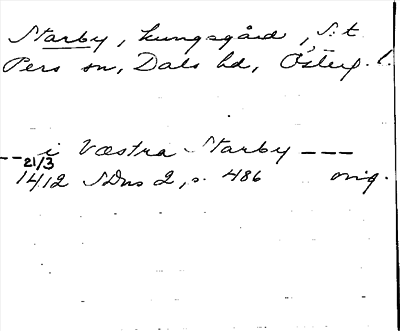 Starby, kungsgård, S:t
Pers sn, Dals hd, Österg. l.
-- i Væstra Starby ---
21/3
1412 SDns 2, s. 486 orig.